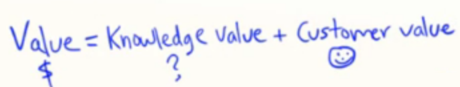 Value = Knowledge value + Customer value
$ ?